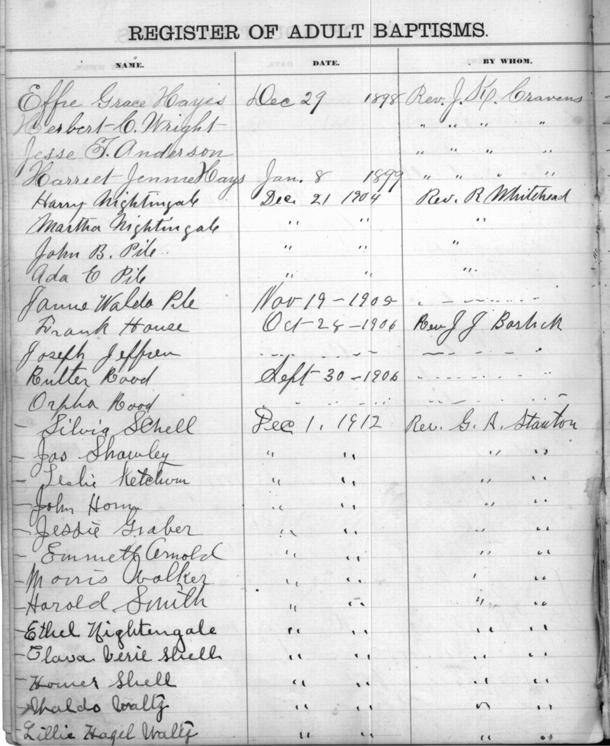 REGISTER OF ADULT BAPTISMS.
NAME. DATE. BY WHOM.
Effie Grace Hayes Dec 29 1898 Rev. J. K. Cravens
Herbert C. Wright " " " "
Jesse F. Anderson " " " "
Harriet Jennie Hays Jan. 8 1899 " " " "
Harry Nightingale Dec. 21 1904 Rev. R Whitehead
Martha Nightingale " " "
John B. Pile " " "
Ada E Pile " " "
Waldo Pile Nov 19 - 190
Frank House Oct - 24 - 1906 Rev J J
Joseph
Rood Sept 30 - 1906
Orpha Rood
Silvia Schell Dec 1, 1912 Rev. G. A. Stanton
- Jas Shawley " " " "
- Leslie Ketchum " " " "
- John " " " "
- Jessie Graber " " " "
- Emmett Arnold " " " "
- Morris Walker " " " "
- Harold Smith " " " "
- Ethel Nightengale " " " "
- Shell " " " "
- Homer Shell " " " "
- Waltz " " " "
- Lillie Hazel Waltz " " " "